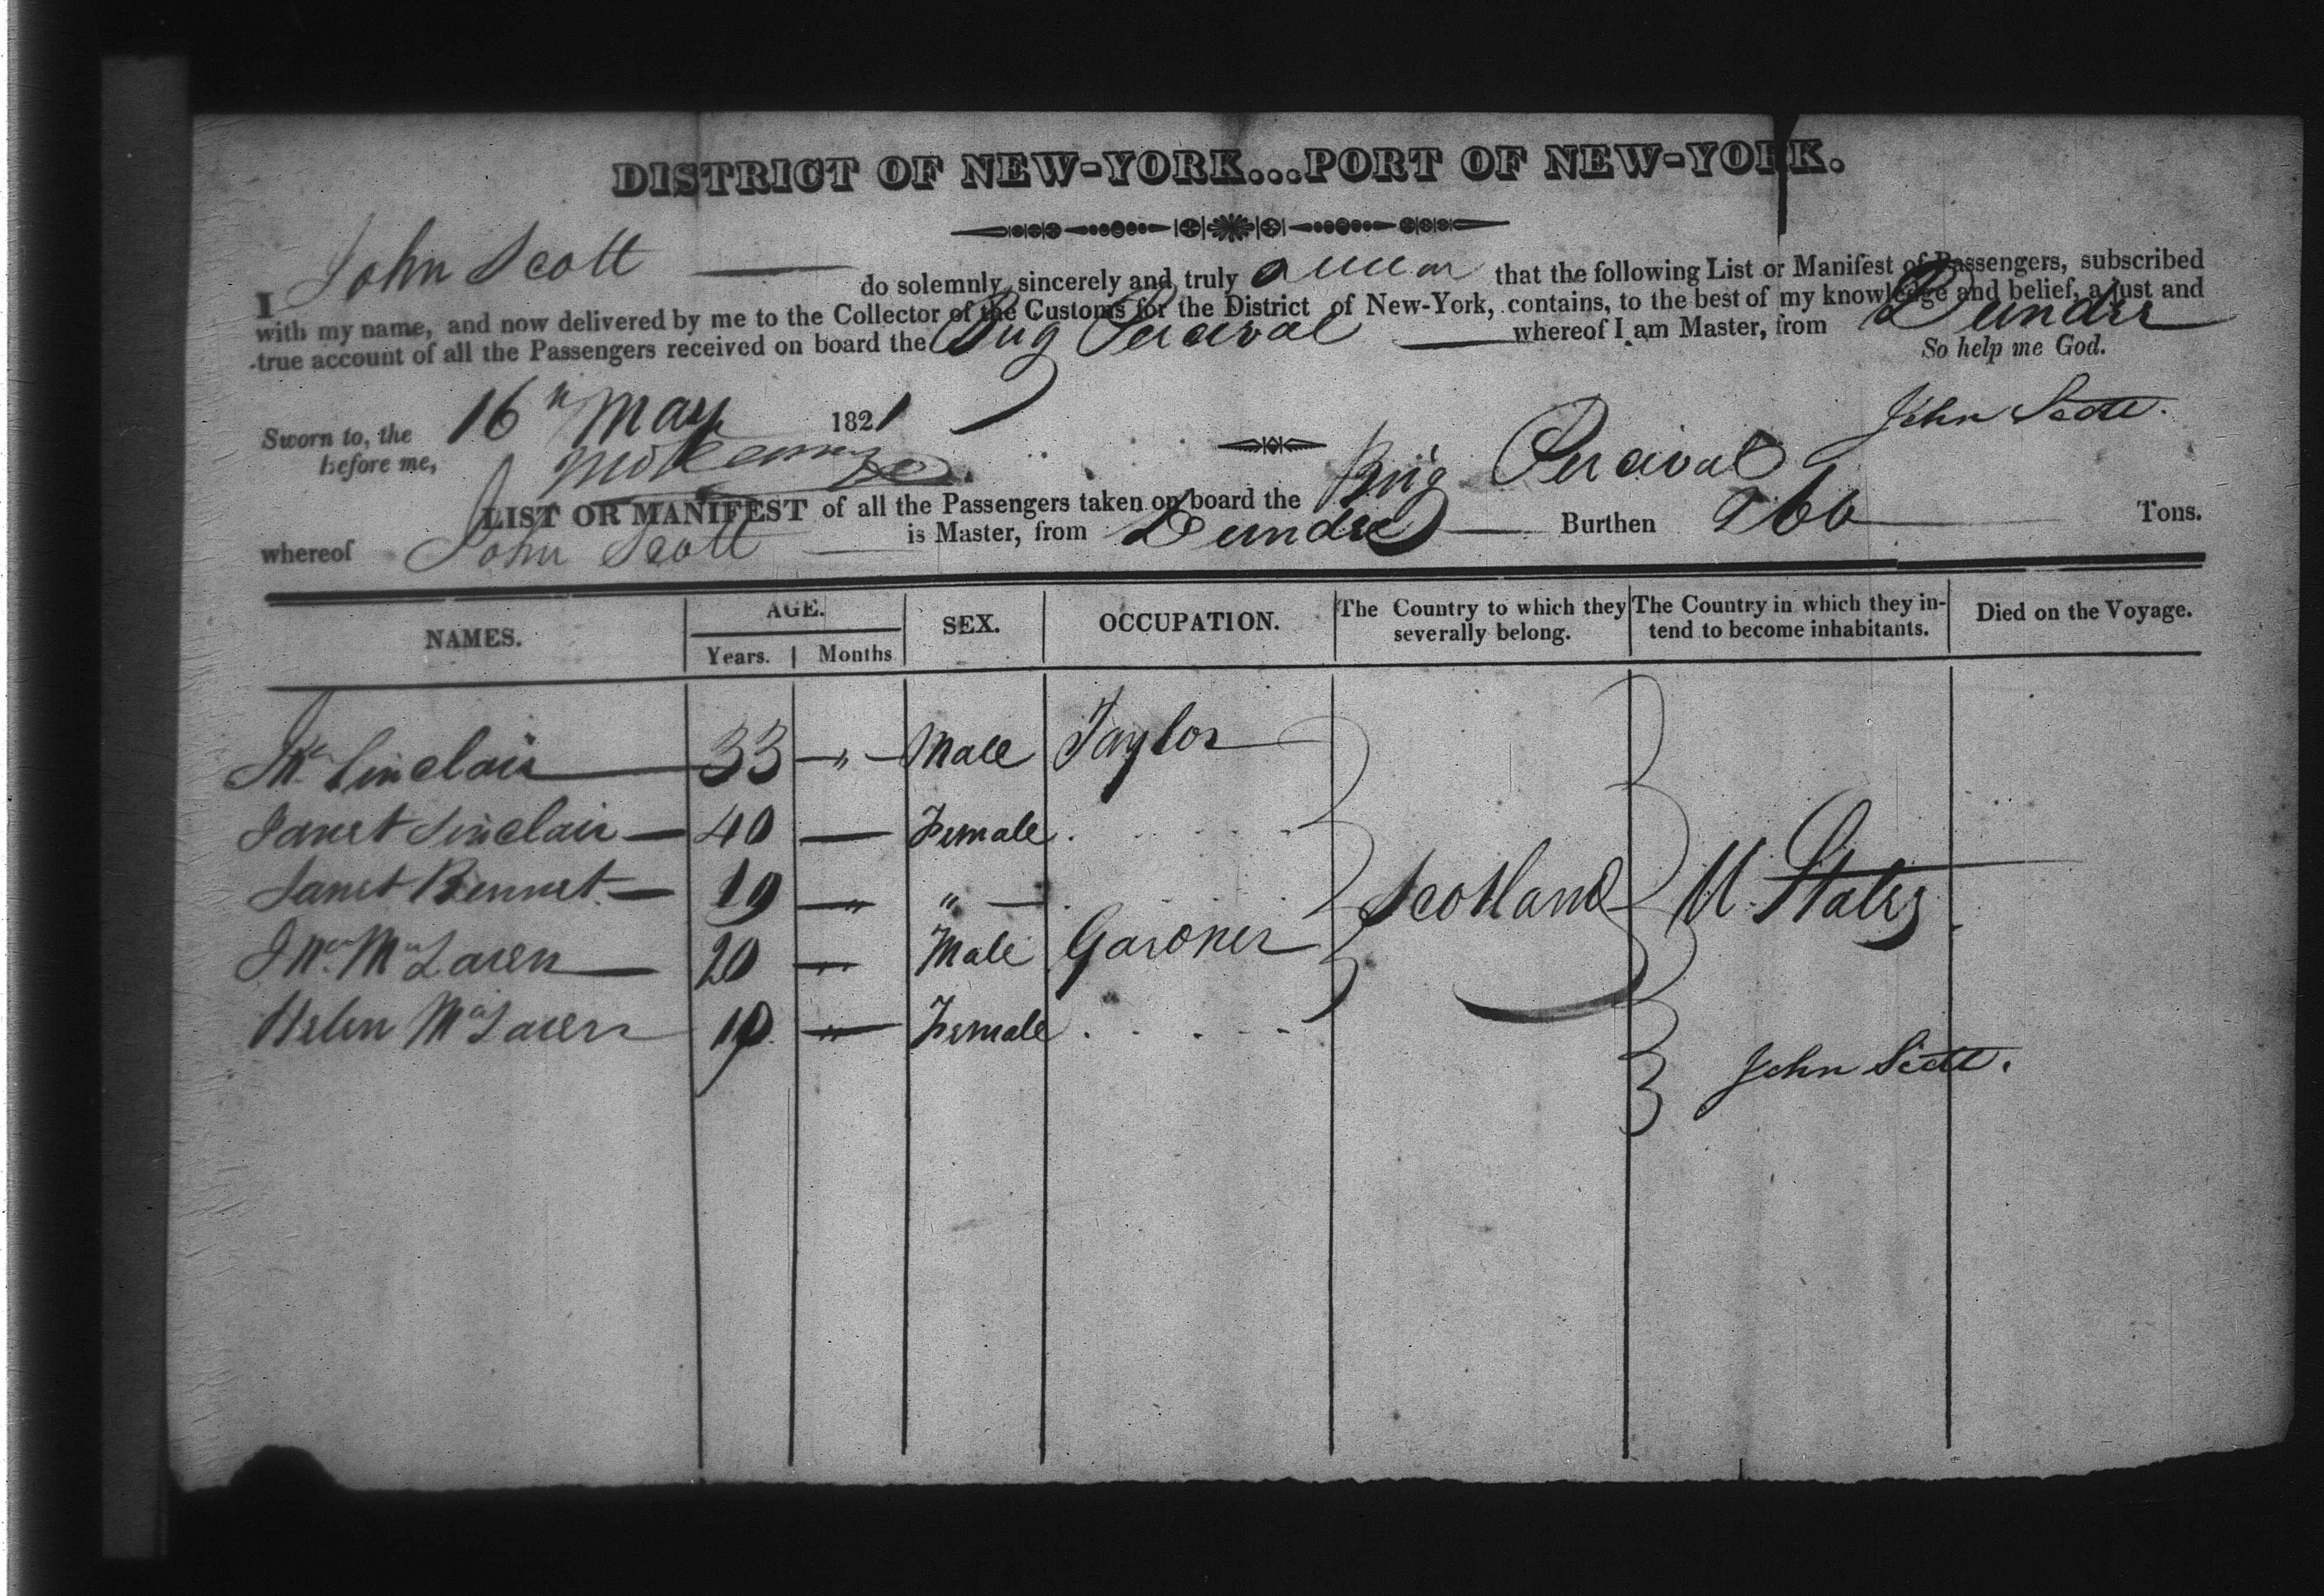 DISTRICT OF NEW-YORK...PORT OF NEW-YORK.
I John Scott do solemnly, sincerely and truly that the following List or Manifest of Passengers, subscribed
with my name, and now delivered by me to the Collector of the Customs for the District of New-York, contains, to the best of my knowledge and belief, a just and
true account of all the Passengers received on board the Brig Percival whereof I am Master, from Dundee
So help me God.
Sworn to, the 16th May 1821 John Scott.
before me,
LIST OR MANIFEST of all the Passengers taken on board the Brig Percival
whereof John Scott is Master, from Dundee Burthen Tons.
NAMES. AGE. Years. Months SEX. OCCUPATION. The Country to which they severally belong. The Country in which they intend to become inhabitants. Died on the Voyage.
Sinclair 33 " Male Taylor
Janet Sinclair 40 Female
Janet Bennet 19 " "
Jno. McLaren 20 " Male Gardner
Helen McLaren 19 " Female
Scotland U. States
John Scott.